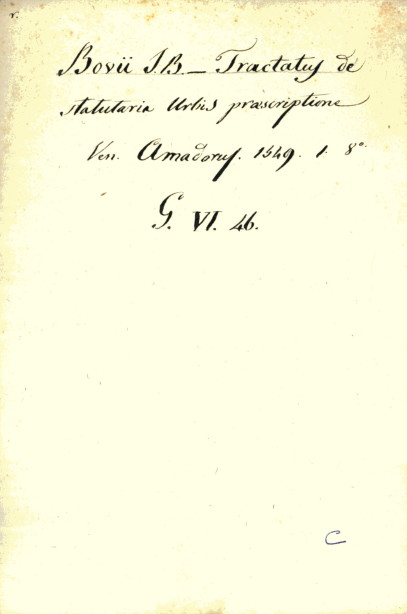 r.
Bovii J. B. — Tractatus de
statutaria Urbis præscriptione
Ven. Amadorus. 1549. 1. 8°.
G. VI. 46.
C